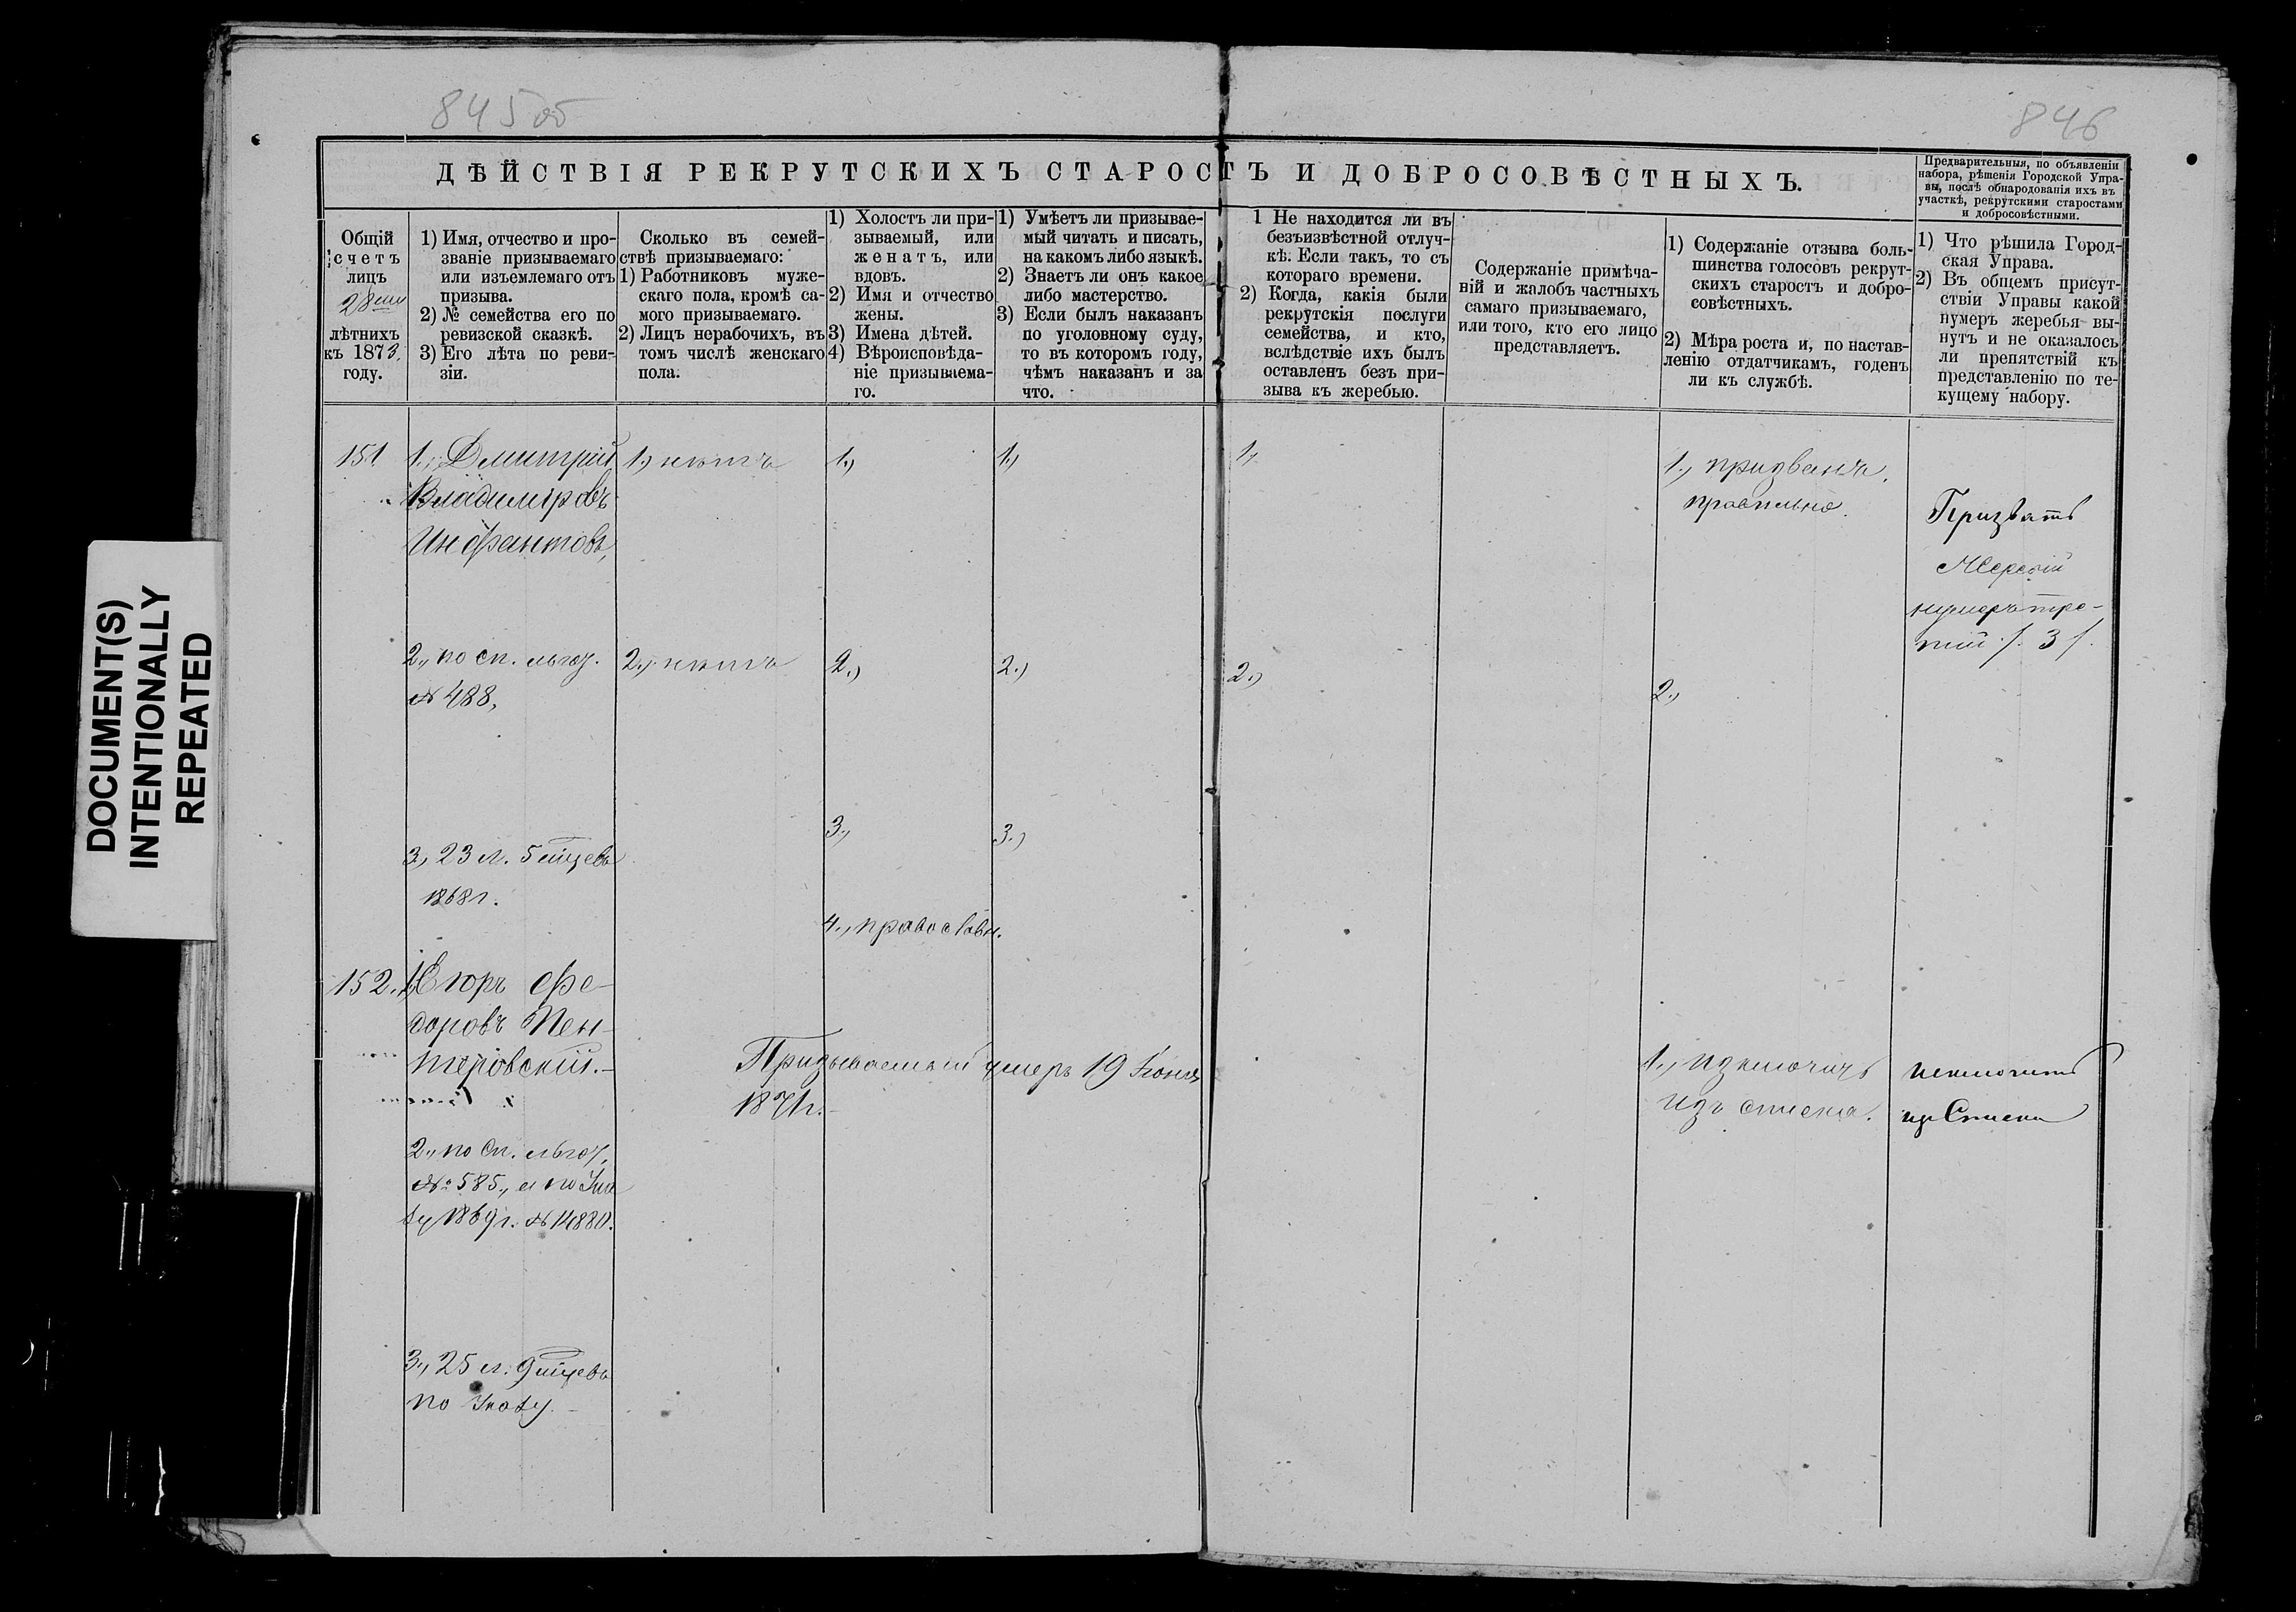 845 об
846
ДѢЙСТВІЯ РЕКРУТСКИХЪ СТАРОСТЪ И ДОБРОСОВѢСТНЫХЪ.
Предварительныя, по объявленіи
набора, рѣшенія Городской Упра-
вы, послѣ обнародованія ихъ въ
участкѣ, рекрутскими старостами
и добросовѣстными.
Общій
счетъ
лицъ
28ми
лѣтнихъ
къ 1873.
году.
1) Имя, отчество и про-
званіе призываемаго
или изъемлемаго отъ
призыва.
2) № семейства его по
ревизской сказкѣ.
3) Его лѣта по реви-
зіи.
Сколько въ семей-
ствѣ призываемаго:
1) Работниковъ муже-
скаго пола, кромѣ са-
мого призываемаго.
2) Лицъ нерабочихъ, въ
томъ числѣ женскаго
пола.
1) Холостъ ли при-
зываемый, или
женатъ, или
вдовъ.
2) Имя и отчество
жены.
3) Имена дѣтей.
4) Вѣроисповѣда-
ніе призываема-
го.
1) Умѣетъ ли призывае-
мый читать и писать,
на какомъ либо языкѣ.
2) Знаетъ ли онъ какое
либо мастерство.
3) Если былъ наказанъ
по уголовному суду,
то въ которомъ году,
чѣмъ наказанъ и за
что.
1 Не находится ли въ
безъизвѣстной отлуч-
кѣ. Если такъ, то съ
котораго времени.
2) Когда, какія были
рекрутскія послуги
семейства, и кто,
вслѣдствіе ихъ былъ
оставленъ безъ при-
зыва къ жеребью.
Содержаніе примѣча-
ній и жалобъ частныхъ
самаго призываемаго,
или того, кто его лицо
представляетъ.
1) Содержаніе отзыва боль-
шинства голосовъ рекрут-
скихъ старостъ и добро-
совѣстныхъ.
2) Мѣра роста и, по настав-
ленію отдатчикамъ, годенъ
ли къ службѣ.
1) Что рѣшила Город-
ская Управа.
2) Въ общемъ присут-
ствіи Управы какой
нумеръ жеребья вы-
нутъ и не оказалось
ли препятствій къ
представленію по те-
кущему набору.
151.
1., Дмитрій
Владиміровъ
Инфантовъ,
2., по сп. льгот.
№ 488,
3., 23 л. 5 мцевъ
1868 г.
1.) нѣтъ
2.) нѣтъ
1.)
2.)
3.,
4., православн.
1.)
2.)
3.)
1,
2.)
1., призванъ
правильно.
2.,
Призвать
нумеръ тре-
тій /. 3 /.
152.
1., Егоръ Фе-
доровъ Пен-
теровскій.
2., по сп. льгот.
№ 585., и по
1869 г. № 14880.
3., 25 л. 9 мцевъ
по
Призываемый умеръ 19 Іюня
1871 г.
1., изключить
изъ списка.
исключить
из Списка
DOCUMENT(S)
INTENTIONALLY
REPEATED